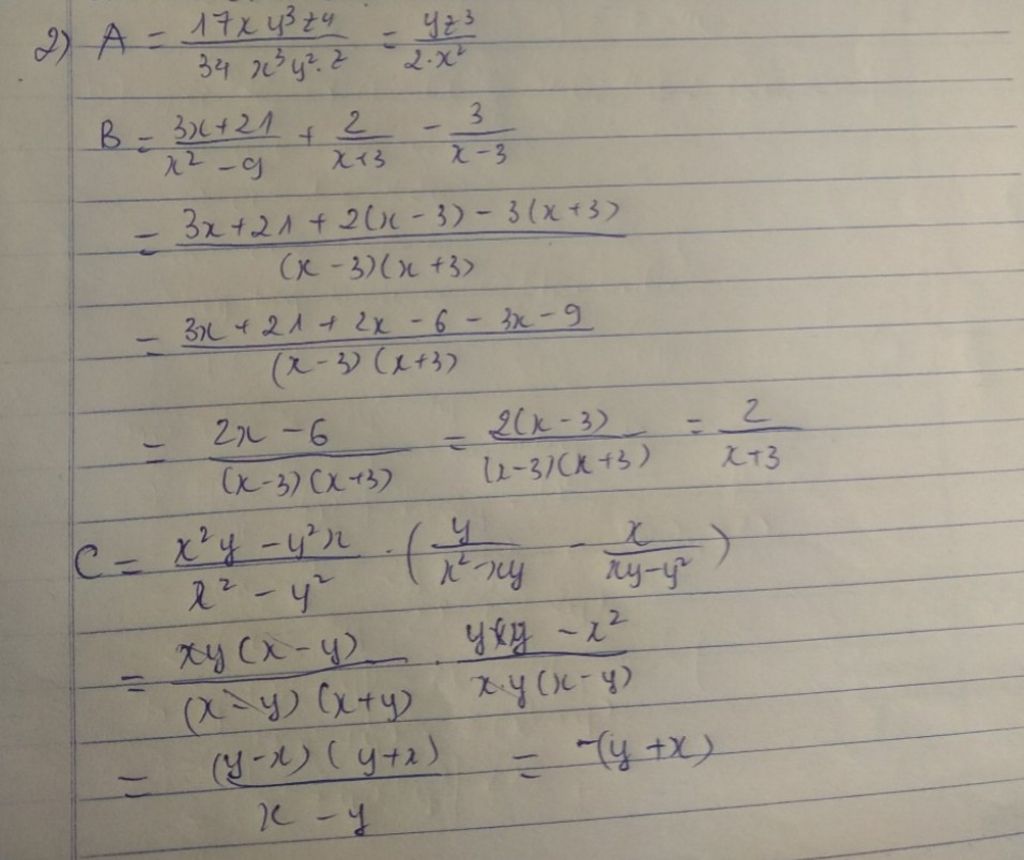 2) A = \frac{17xy^3z^4}{34x^3y^2.z} = \frac{yz^3}{2.x^2}
B = \frac{3x+21}{x^2-9} + \frac{2}{x+3} - \frac{3}{x-3}
= \frac{3x+21+2(x-3)-3(x+3)}{(x-3)(x+3)}
= \frac{3x+21+2x-6-3x-9}{(x-3)(x+3)}
= \frac{2x-6}{(x-3)(x+3)} = \frac{2(x-3)}{(x-3)(x+3)} = \frac{2}{x+3}
C = \frac{x^2y-y^2x}{x^2-y^2} . (\frac{y}{x^2-xy} - \frac{x}{xy-y^2})
= \frac{xy(x-y)}{(x-y)(x+y)} . \frac{-x^2}{xy(x-y)}
= \frac{(y-x)(y+x)}{x-y} = -(y+x)